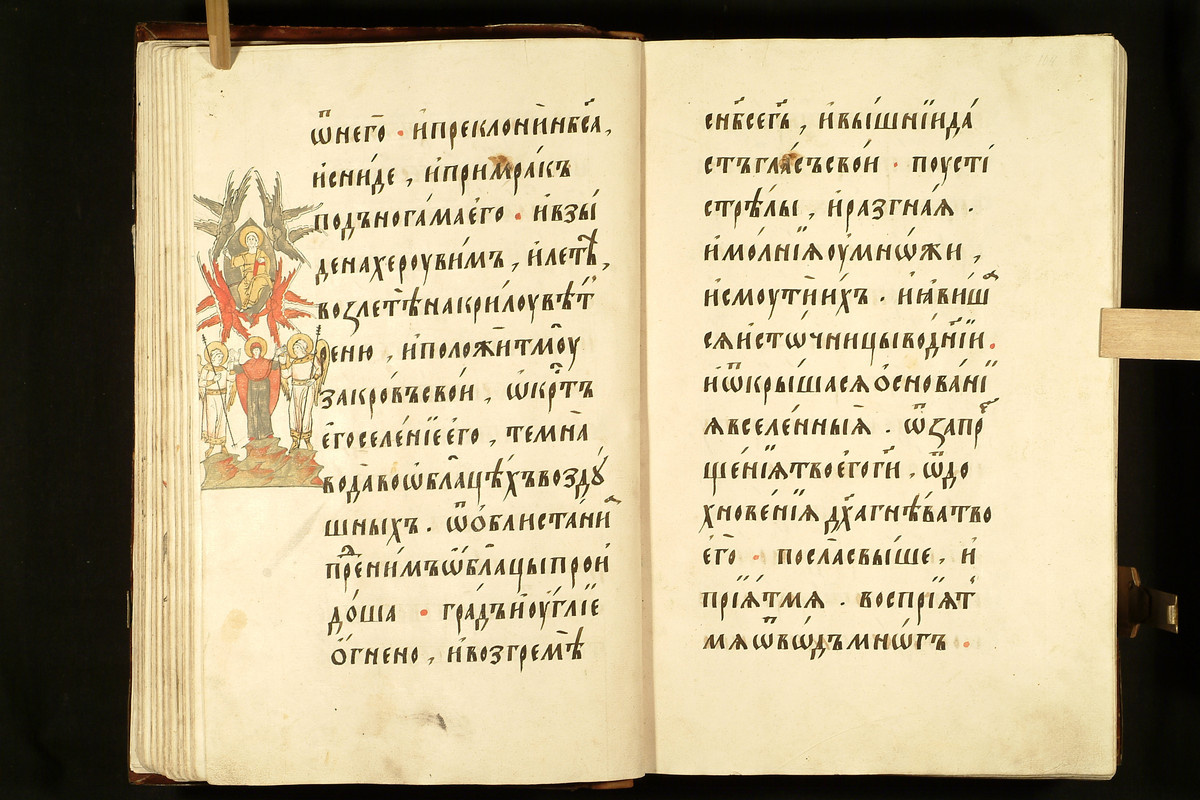 ѿнегѡ̀ · и҆преклонѝнб҃са̀,
и҆сни́де , и҆примра́къ
подънога́маегѡ̀ · и҆взы́
денахероуви́мъ , и҆летѣ̀,
возлетѣ̀накри́лоувѣ́т
реню , и҆положѝтмо̀у
закро́въсво́и , ѡ҆́крт҃ъ
є҆го̀селе́нїеегѡ̀ , темна̀
вода̀воѡ҆́блацѣхъвозду́
шныхъ . ѿѡ҆блиста́ни
пре́ни́мъѡ҆́блацыпрои
до́ша · гра́дъиоу҆́глїе
о҆́гнено , и҆возгремѣ̀
снб҃сегь҃ , и҆вы́шнїида́
стъгла́съсво́и · поусті̀
стрѣ́лы , и҆разгна̀я .
и҆мо́лнїѧоу҆мно́жи ,
и҆смоутѝи҆́хъ . и҆ꙗ҆ви́ш
сѧи҆сто́чницыво́днїи.
и҆ѿкры́шасѧо҆снова́нї
ѧвселе́нныѧ . ѿзапр
ще́нїѧтвоегѡ̀ги҃ . ѿдо
хнове́нїѧдх҃агнѣ́ватво
егѡ̀ · посла̀свы́ше , и҆
прїѧ́тмѧ . воспрїѧ́т
мѧѿво́дъмно́гъ .